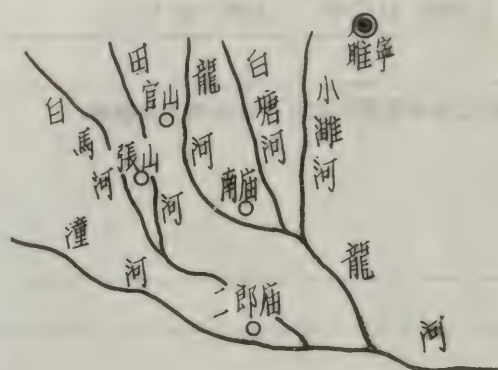 睢宁
白馬河
田河
官山
龍河
白塘河
小濉河
張山
南庙
潼河
二郎庙
龍河